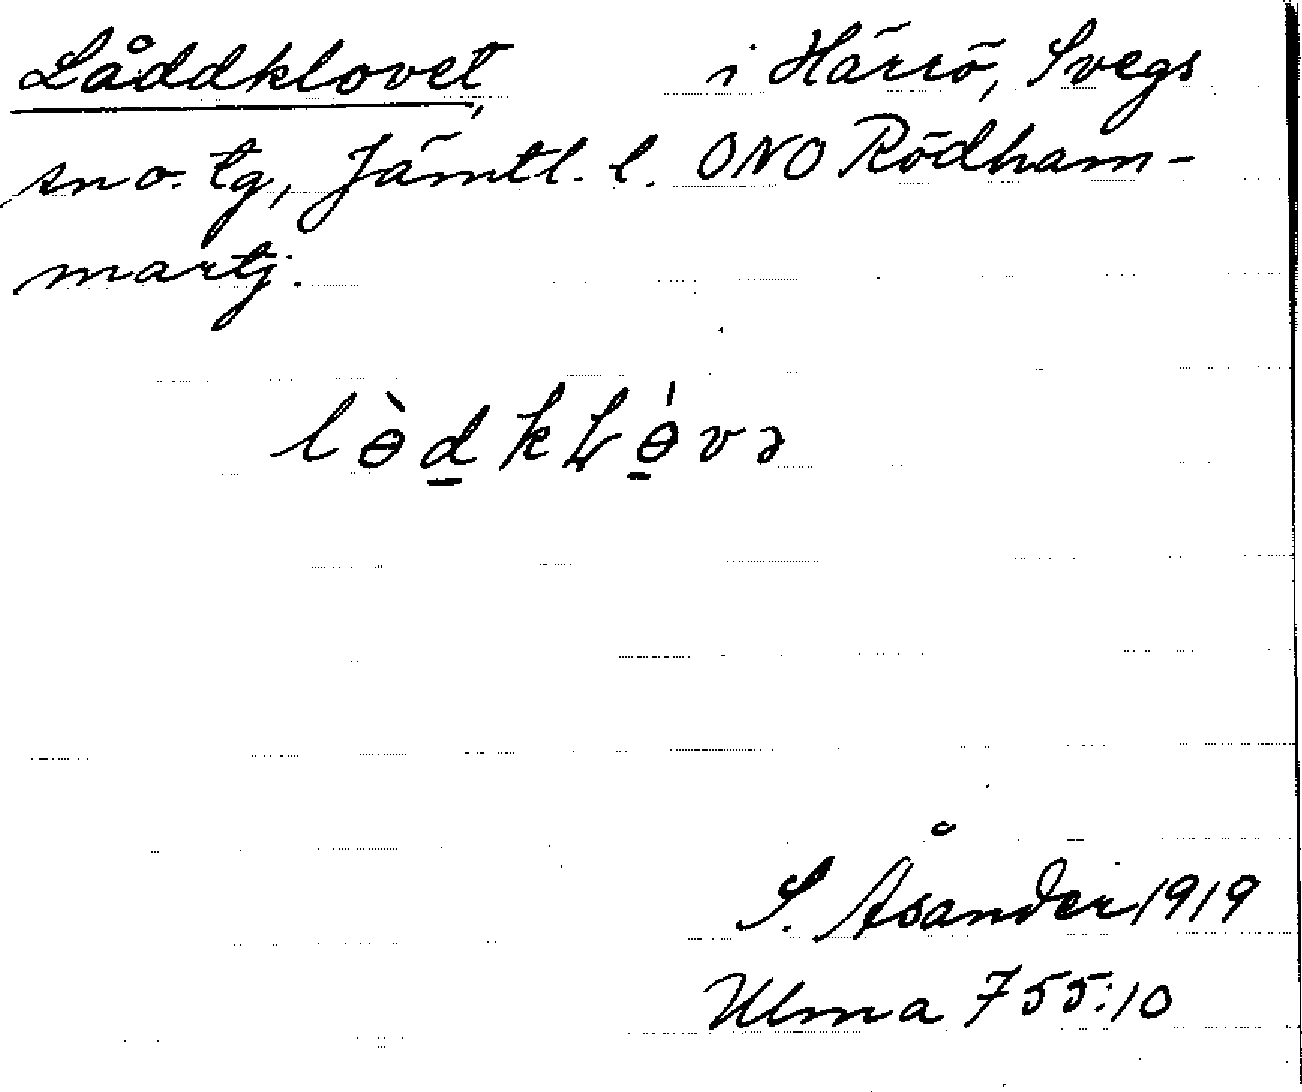 Låddklovet, i Härrö, Svegs
sn o. tg, Jämtl. l. ONO Rödham-
martj.
lɵ̀d̲kLɵ̲́və
S. Åsander 1919
Ulma 755:10